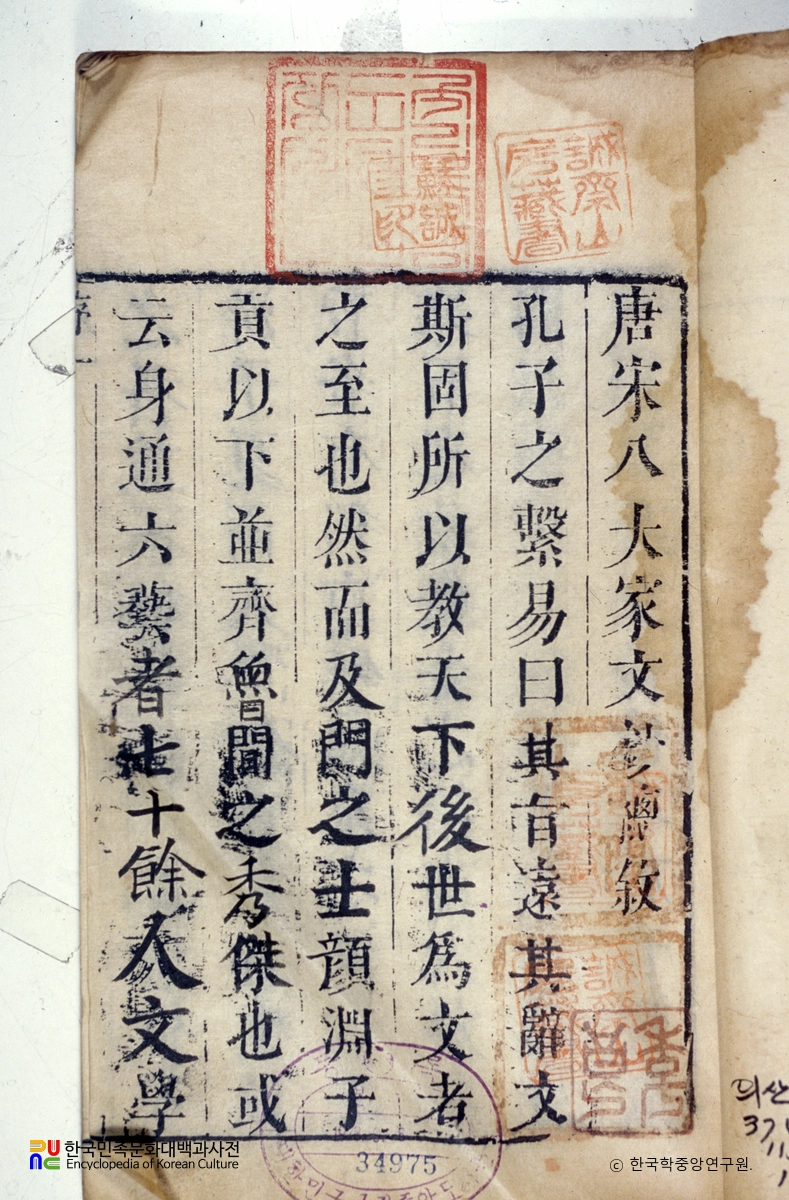 唐宋八大家文抄總敘
孔子之繫易曰其旨遠其辭文
斯固所以教天下後世爲文者
之至也然而及門之士顔淵子
貢以下並齊魯間之秀傑也或
云身通六藝者七十餘人文學
序一
誠齋山房藏書
34975
의산
한국민족문화대백과사전
Encyclopedia of Korean Culture
© 한국학중앙연구원.